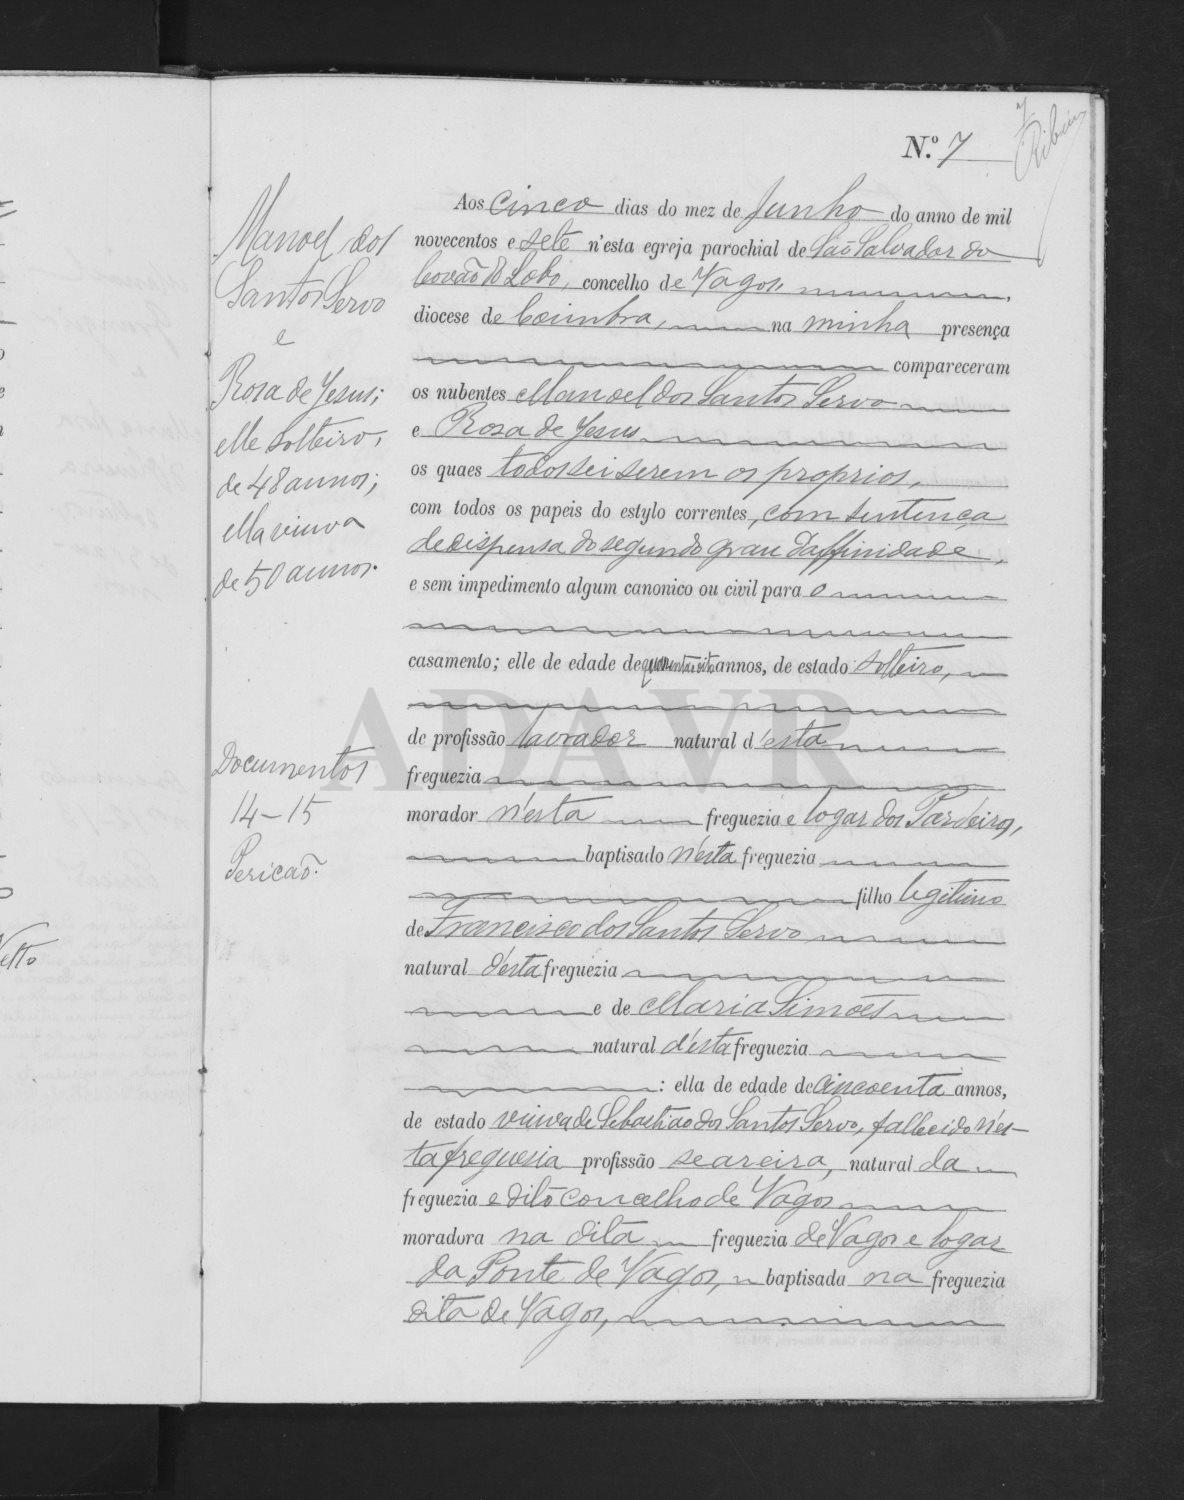 7
Ribeiro
N.º 7
Manoel dos
Santos Servo
e
Rosa de Jesus;
elle solteiro,
de 48 annos;
ella viuva
de 50 annos.
Documentos
14-15
Pericaõ.
Aos cinco dias do mez de Junho do anno de mil
novecentos e sete n'esta egreja parochial de São Salvador do
Covaõ do Lobo, concelho de Vagos,
diocese de Coimbra, na minha presença
compareceram
os nubentes Manoel dos Santos Servo
e Rosa de Jesus
os quaes todos sei serem os proprios,
com todos os papeis do estylo correntes, com sentença
de dispensa do segundo grau d'affinidade,
e sem impedimento algum canonico ou civil para o
casamento; elle de edade de quarenta e oito annos, de estado solteiro,
de profissão lavrador natural d'esta
freguezia
morador n'esta freguezia e logar dos Pardeiros,
baptisado n'esta freguezia
filho legitimo
de Francisco dos Santos Servo
natural d'esta freguezia
e de Maria Simões
natural d'esta freguezia
: ella de edade de cincoenta annos,
de estado viuva de Sebastiao dos Santos Servo, fallecido n'es-
ta freguesia profissão seareira, natural da
freguezia e dito concelho de Vagos
moradora na dita freguezia de Vagos e logar
da Ponte de Vagos, baptisada na freguezia
dita de Vagos,
ADAVR